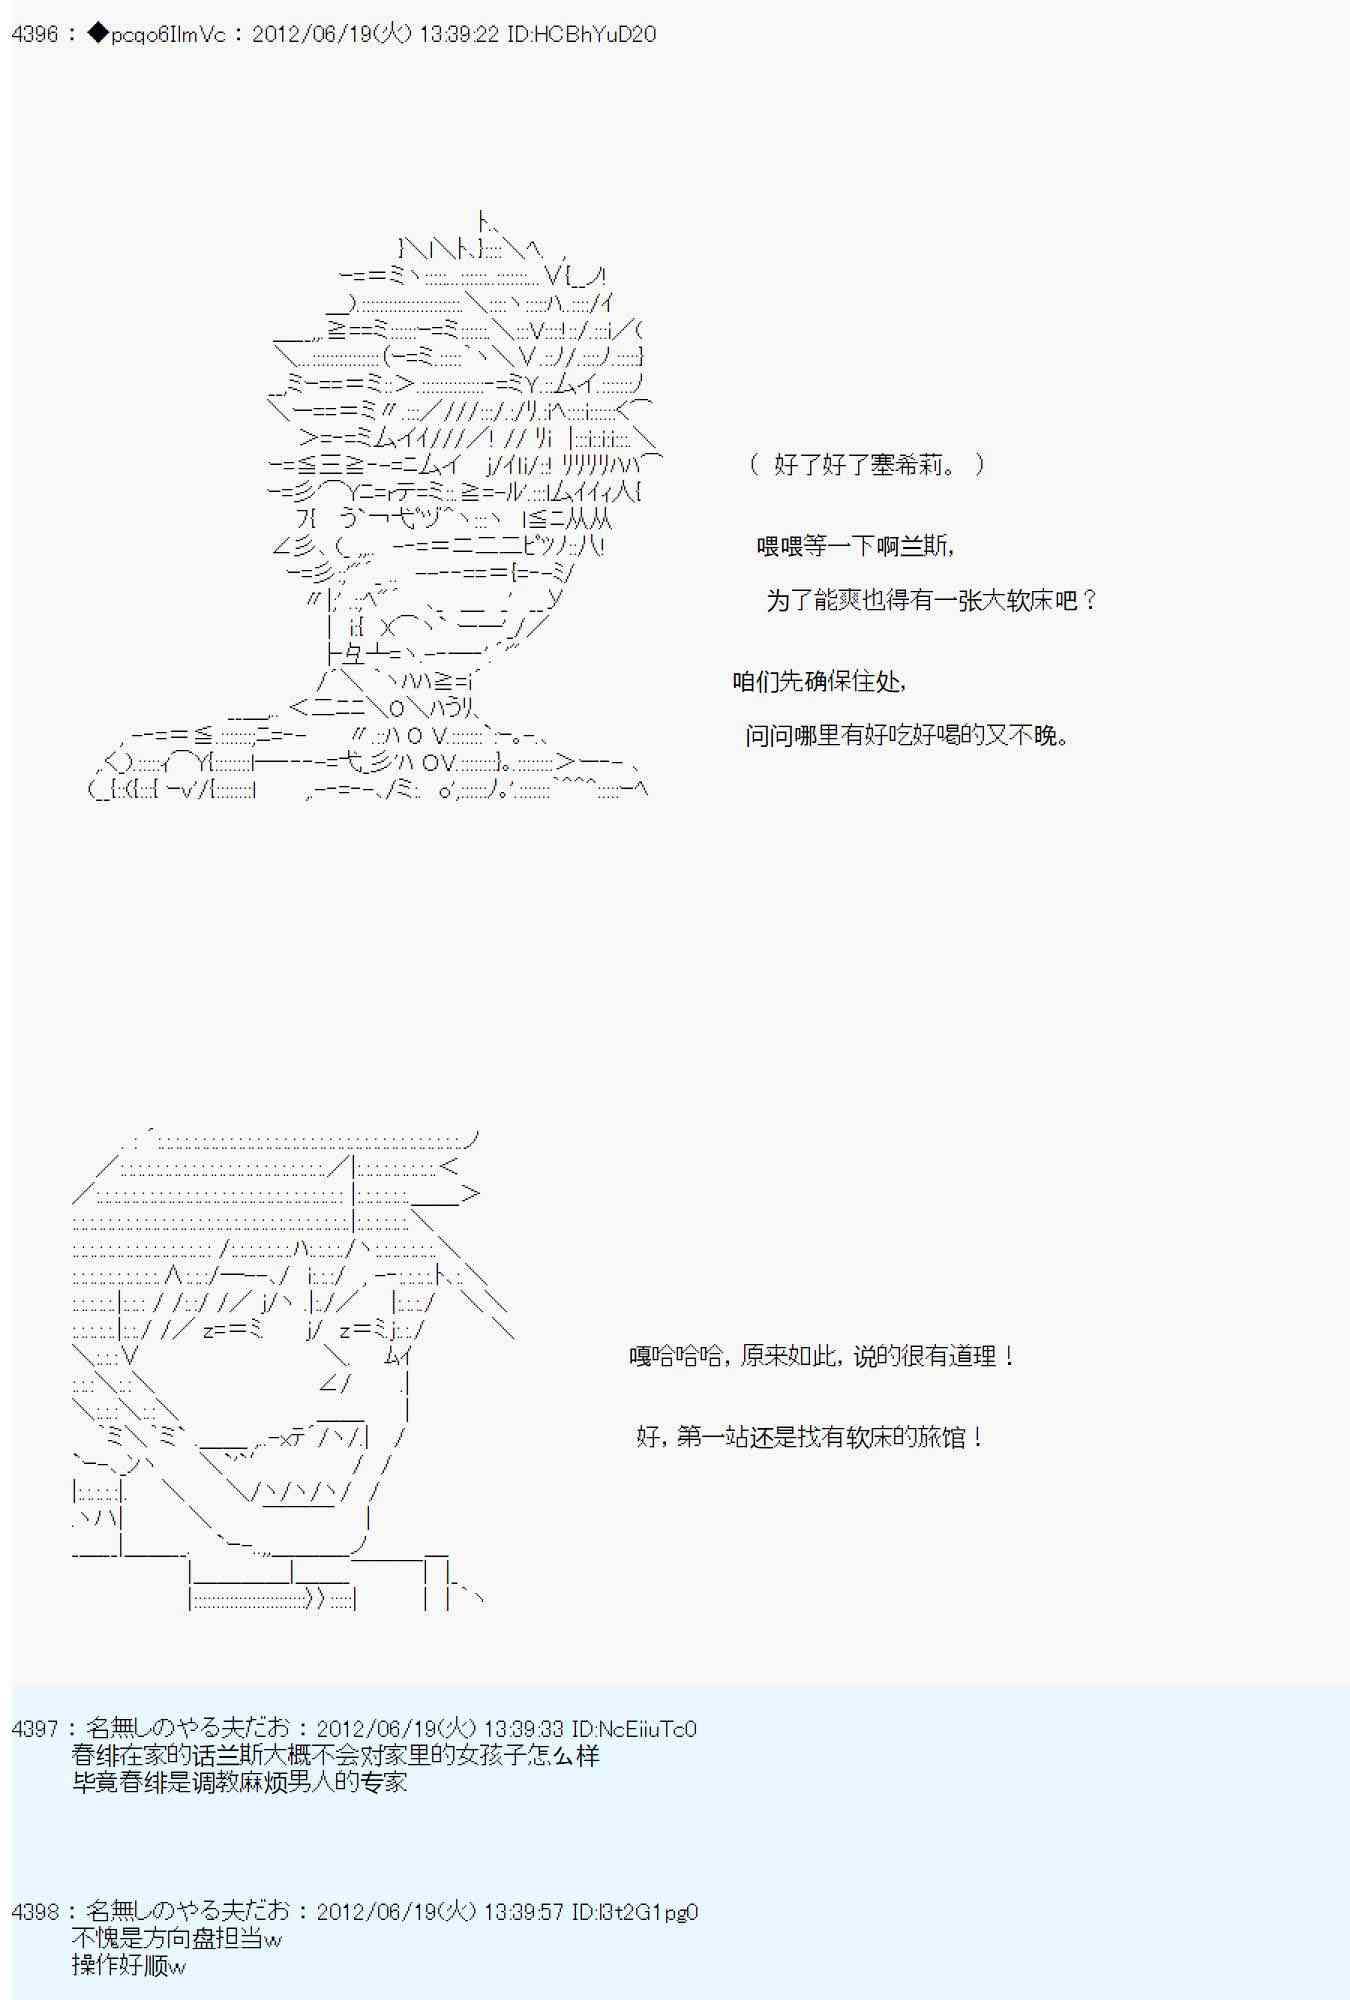 4396 : ◆pcqo6IlmVc : 2012/06/19(火) 13:39:22 ID:HCBhYuD20
( 好了好了塞希莉。 )
喂喂等一下啊兰斯,
为了能爽也得有一张大软床吧?
咱们先确保住处,
问问哪里有好吃好喝的又不晚。
嘎哈哈哈, 原来如此, 说的很有道理!
好, 第一站还是找有软床的旅馆!
4397 : 名無しのやる夫だお : 2012/06/19(火) 13:39:33 ID:NcEiiuTc0
春绯在家的话兰斯大概不会对家里的女孩子怎么样
毕竟春绯是调教麻烦男人的专家
4398 : 名無しのやる夫だお : 2012/06/19(火) 13:39:57 ID:l3t2G1pg0
不愧是方向盘担当w
操作好顺w